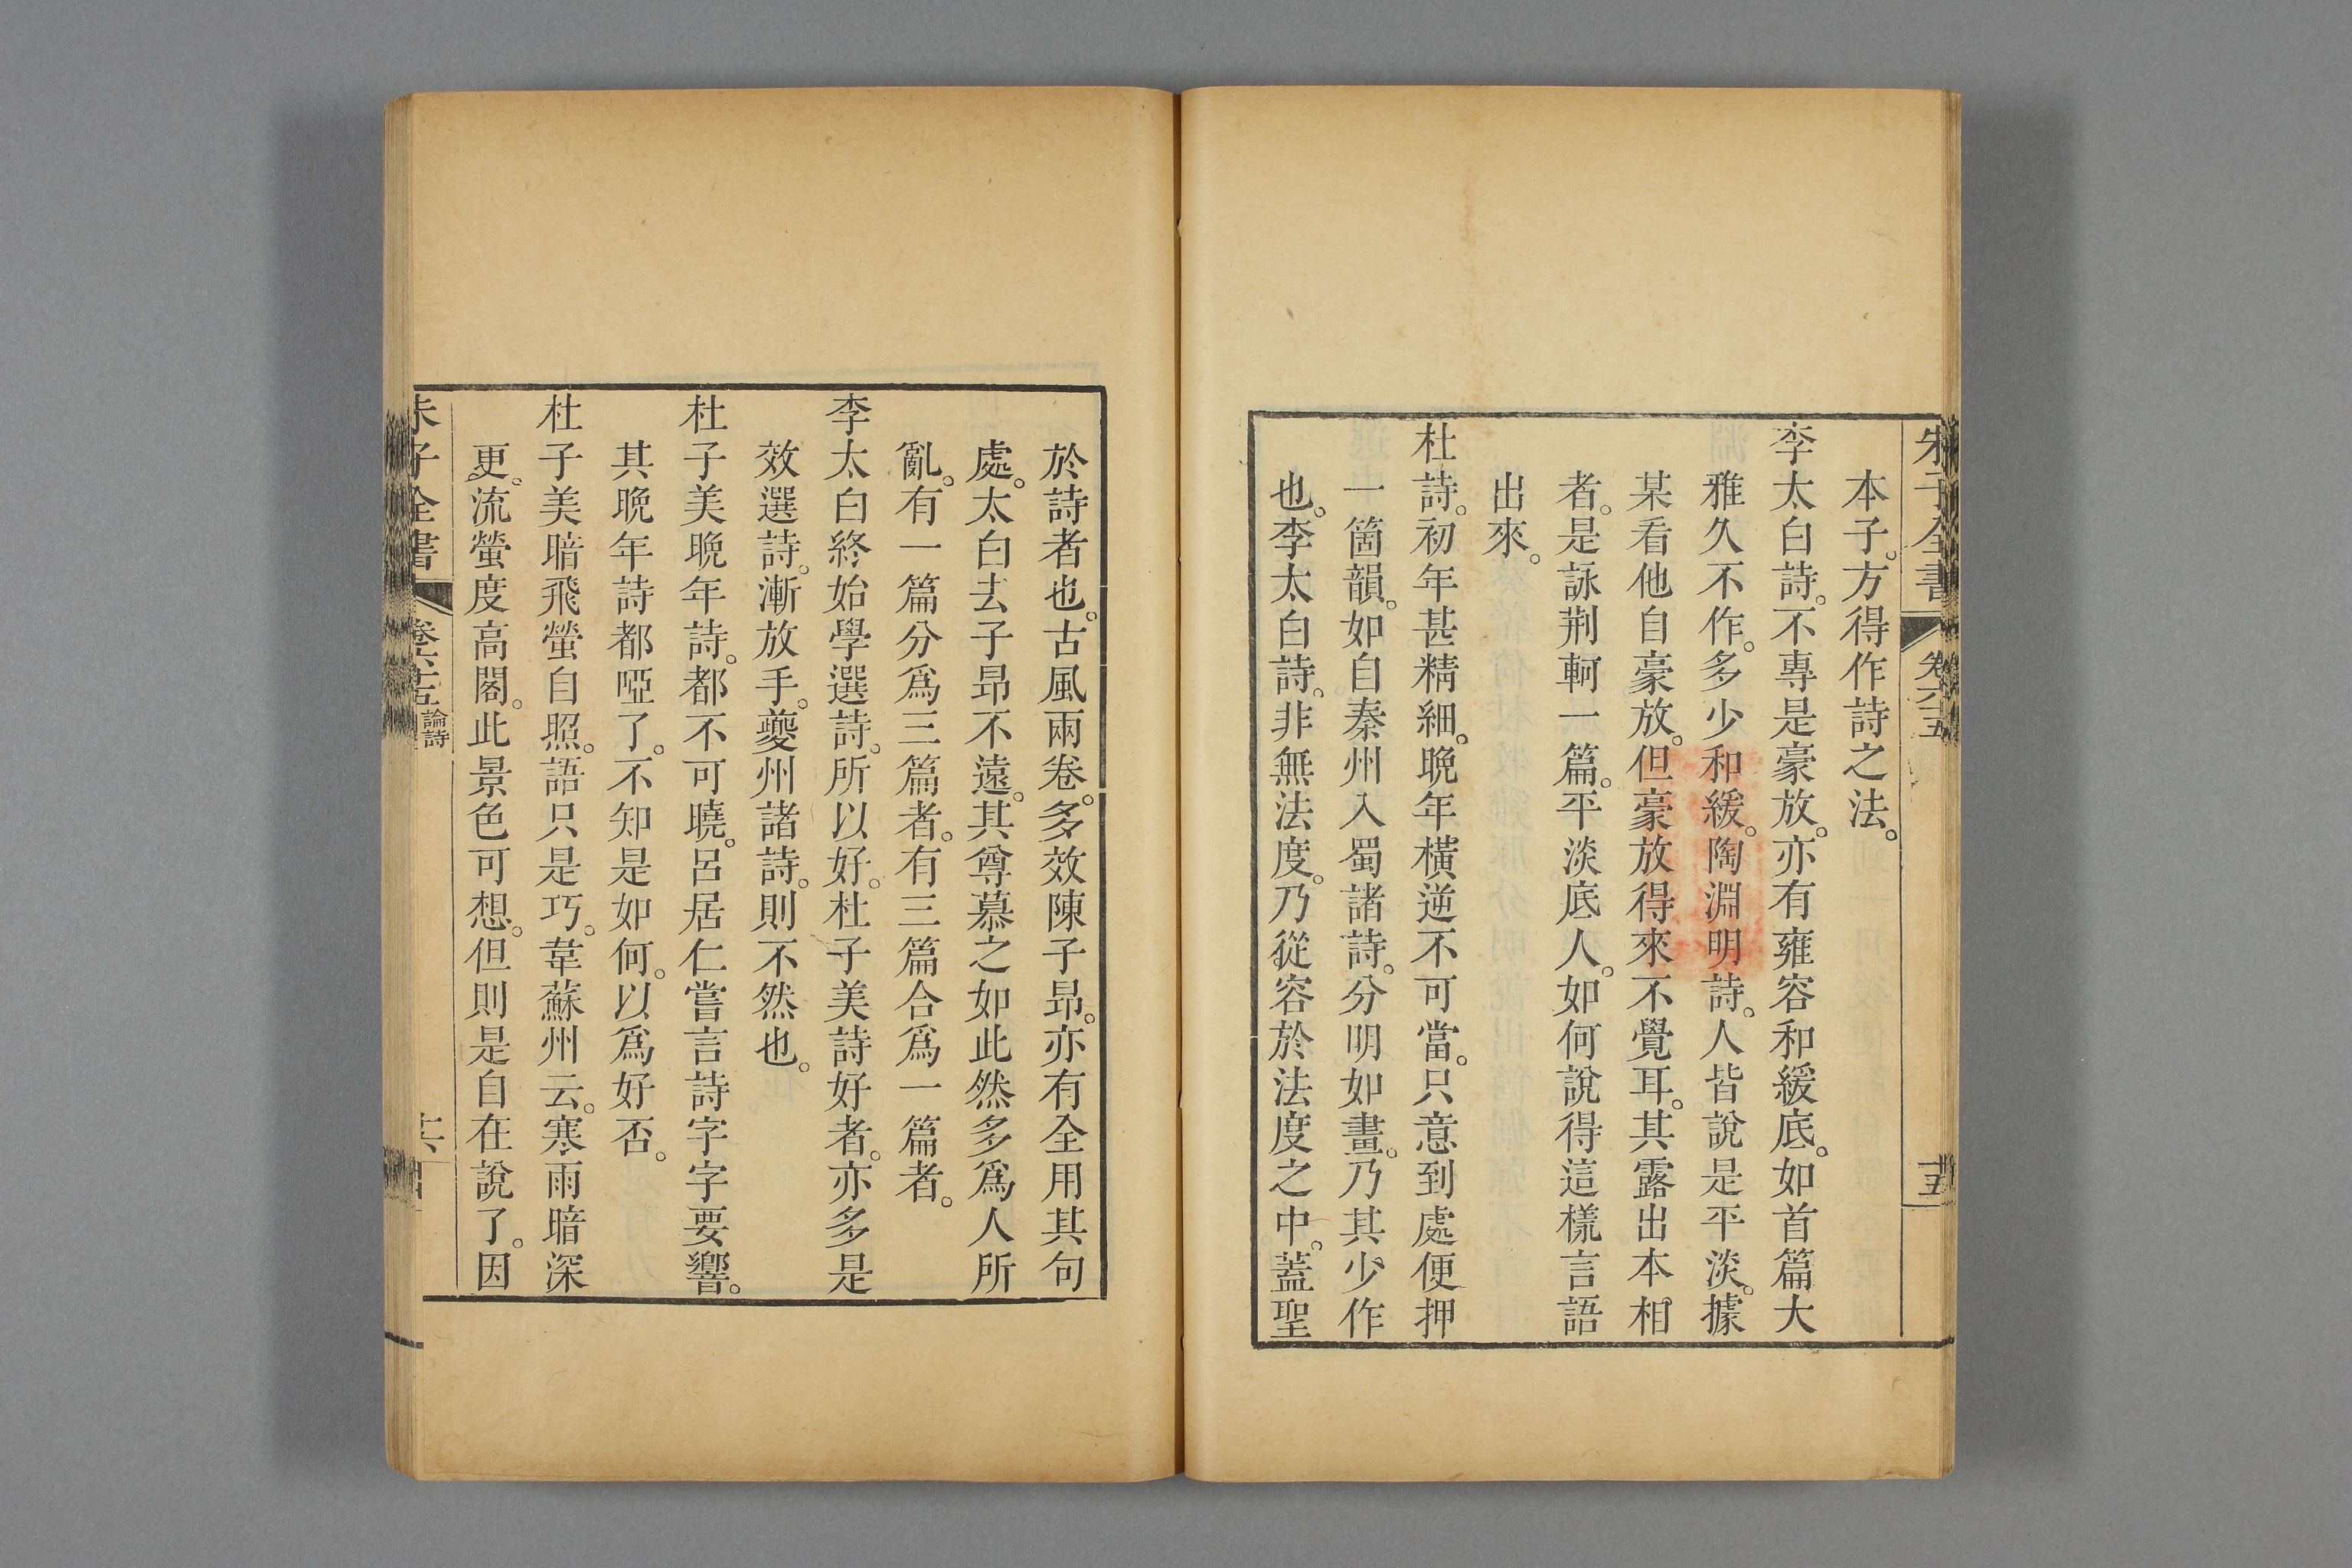 朱子全書 卷六十五 十五
本子。方得作詩之法。
李太白詩。不專是豪放。亦有雍容和緩底。如首篇大
雅久不作。多少和緩。陶淵明詩。人皆說是平淡。據
某看他自豪放。但豪放得來不覺耳。其露出本相
者。是詠荆軻一篇。平淡底人。如何說得這樣言語
出來。
杜詩。初年甚精細。晚年橫逆不可當。只意到處便押
一箇韻。如自秦州入蜀諸詩。分明如畫。乃其少作
也。李太白詩。非無法度。乃從容於法度之中。蓋聖
於詩者也。古風兩卷。多效陳子昂。亦有全用其句
處。太白去子昂不遠。其尊慕之如此然多爲人所
亂。有一篇分爲三篇者。有三篇合爲一篇者。
李太白終始學選詩。所以好。杜子美詩好者。亦多是
效選詩。漸放手。夔州諸詩。則不然也。
杜子美晚年詩。都不可曉。呂居仁嘗言詩字字要響。
其晚年詩都啞了。不知是如何。以爲好否。
杜子美暗飛螢自照。語只是巧。韋蘇州云。寒雨暗深
更。流螢度高閣。此景色可想。但則是自在說了。因
朱子全書 卷六十五 論詩 十六